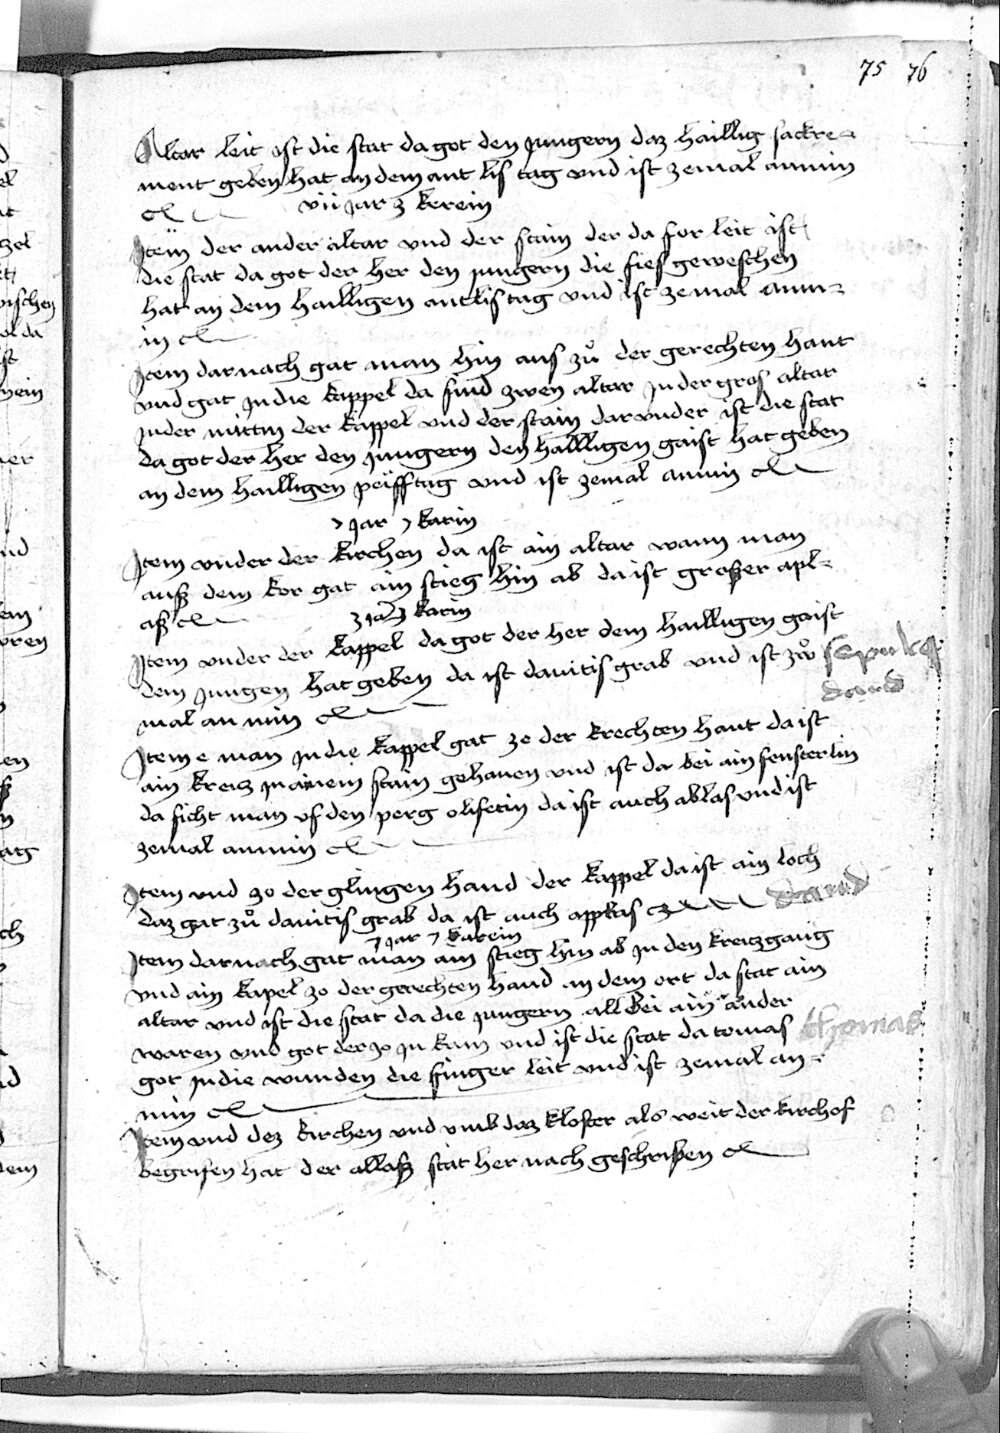 75 76
Altar leit ist die stat da got den jungern daz haillig sackre-
ment geben hat an dem ant lis tag vnd ist zemal annim
vii jar 3 kerein
Item der ander altar vnd der stain der da for leit ist
die stat da got der her den jungern die fies geweschen
hat an dem hailligen antlistag vnd ist zemal anni-
in
Item darnach gat man hin aus zů der gerechten hant
vnd gat in die kappel da sind zwen altar in der gros altar
in der mittin der kappel vnd der stain darvnder ist die stat
da got der her den jungern den hailligen gaist hat geben
an dem hailligen pfifftag vnd ist zemal annim
7 jar 7 karin
Item vnder der kirchen da ist ain altar wann man
auß dem kor gat ain stieg hin ab da ist großer apl-
aß
7 jar 7 karin
Item vnder der kappel da got der her dem hailligen gaist
dem jungen hat geben da ist dauitis grab vnd ist zů
david
mal an nim
Item e man in die kappel gat ze der krechten hant da ist
ain kreuz in ainem stain gehauen vnd ist da bei ain fensterlin
da sicht man vf den perg olifetin da ist auch ablas vnd ist
zemal annim
Item vnd zo der glingen hand der kappel da ist ain loch
daz gat zů dauitis grab da ist auch applas
david
7 jar 7 karein
Item darnach gat man ain stieg hin ab in den kreuzgang
vnd ain kapel zo der gerechten hand an dem ort da stat ain
altar vnd ist die stat da die jungern all bei ain ander
waren vnd got der zo in kam vnd ist die stat da tomas
thomas
got in die wunden die finger leit vnd ist zemal an-
nim
Item vnd dez kirchen vnd vmb daz kloster als weit der kirchof
begrifen hat der allaß stat her nach geschriben